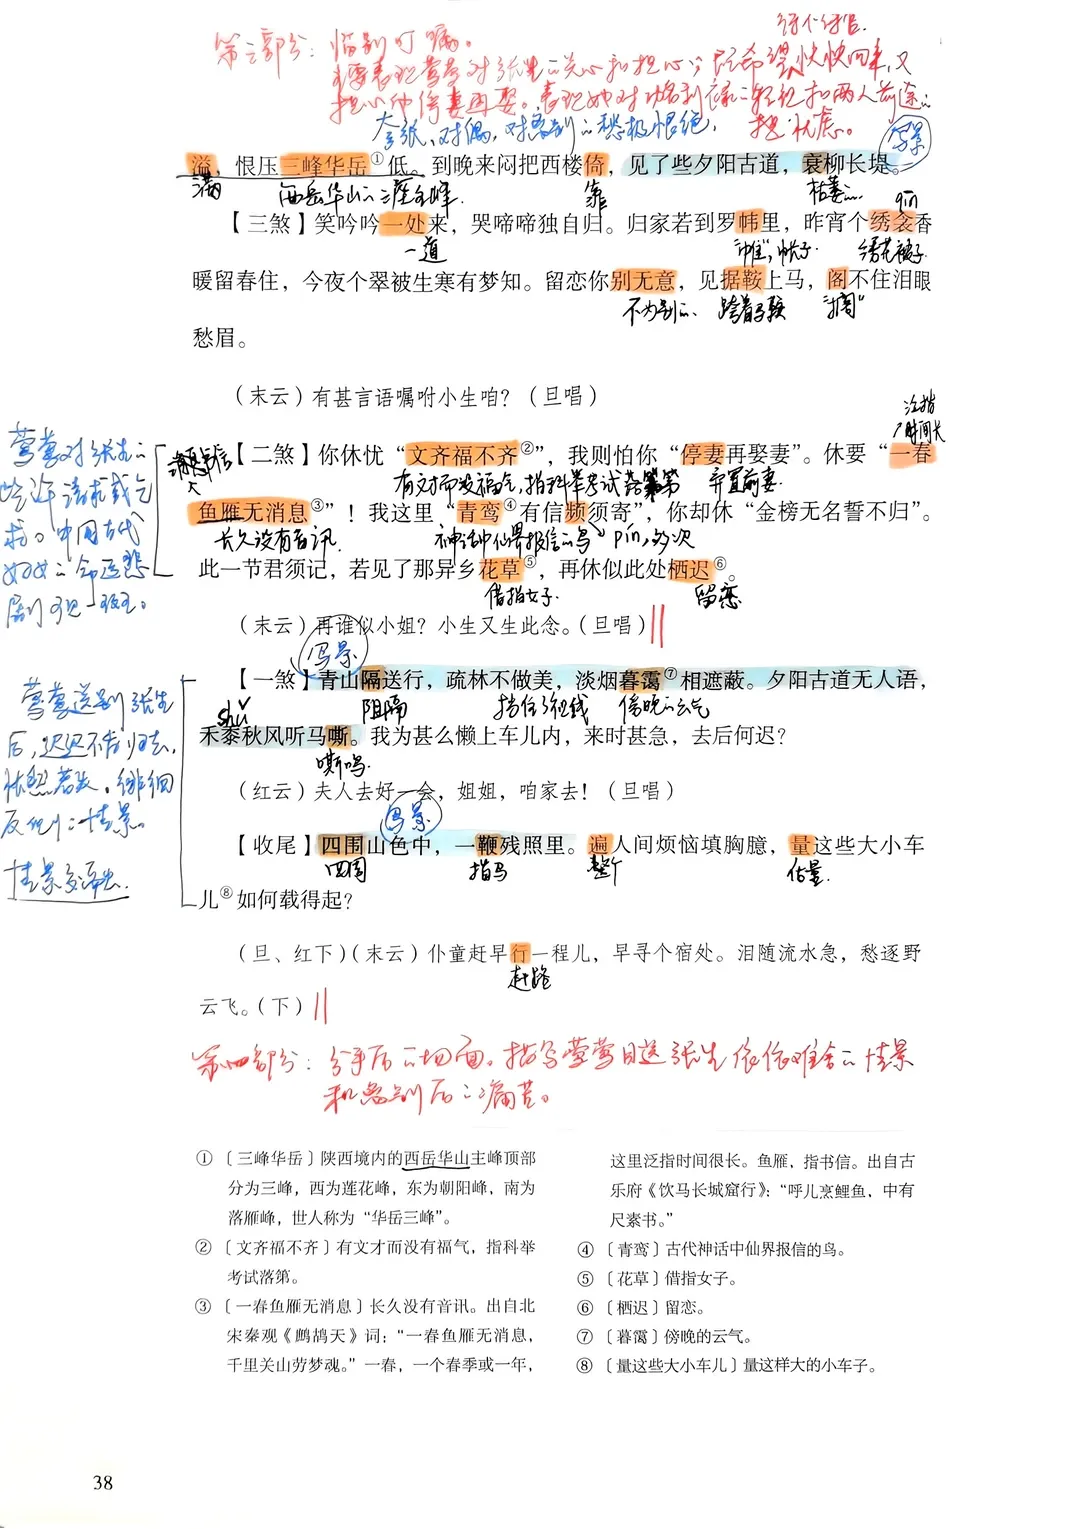 第三部分：临别叮嘱。
主要表现莺莺对张生的关心和担心；既希望快快回来，又
担心他停妻再娶。表现她对功名利禄的轻视和两人前途的
担忧虑。
夸张、对偶，对离别的愁极恨绝，
写景
溢，恨压三峰华岳①低。到晚来闷把西楼倚，见了些夕阳古道，衰柳长堤。
满 西岳华山的三座主峰. 靠 枯萎 qīn
【三煞】笑吟吟一处来，哭啼啼独自归。归家若到罗帏里，昨宵个绣衾香
一道 “帷”，帐子. 绣花被子
暖留春住，今夜个翠被生寒有梦知。留恋你别无意，见据鞍上马，阁不住泪眼
不为别的、 跨着马鞍 “搁”
愁眉。
（末云）有甚言语嘱咐小生咱？（旦唱）
泛指
时间长
【二煞】你休忧“文齐福不齐②”，我则怕你“停妻再娶妻”。休要“一春
有文才而没福气，指科举考试落第 弃置前妻
鱼雁无消息③”！我这里“青鸾④有信频须寄”，你却休“金榜无名誓不归”。
长久没有音讯. 神话中仙界报信的鸟 pín，多次
此一节君须记，若见了那异乡花草⑤，再休似此处栖迟⑥。
借指女子. 留恋
（末云）再谁似小姐？小生又生此念。（旦唱）
莺莺对张生的
叮咛请求或乞
求。中国古代
妇女的命运悲
剧可见一斑。
写景
【一煞】青山隔送行，疏林不做美，淡烟暮霭⑦相遮蔽。夕阳古道无人语，
shǔ 阻隔 挡住了视线 傍晚的云气
禾黍秋风听马嘶。我为甚么懒上车儿内，来时甚急，去后何迟？
嘶鸣.
（红云）夫人去好一会，姐姐，咱家去！（旦唱）
写景
【收尾】四围山色中，一鞭残照里。遍人间烦恼填胸臆，量这些大小车
四周 指马 整个 估量.
儿⑧如何载得起？
莺莺送别张生
后，迟迟不肯归去，
怅然若失。徘徊
反侧的情景。
情景交融.
（旦、红下）（末云）仆童赶早行一程儿，早寻个宿处。泪随流水急，愁逐野
赶路
云飞。（下）
第四部分：分手后的场面。描写莺莺目送张生依依难舍的情景
和离别后的痛苦。
①〔三峰华岳〕陕西境内的西岳华山主峰顶部
分为三峰，西为莲花峰，东为朝阳峰，南为
落雁峰，世人称为“华岳三峰”。
②〔文齐福不齐〕有文才而没有福气，指科举
考试落第。
③〔一春鱼雁无消息〕长久没有音讯。出自北
宋秦观《鹧鸪天》词：“一春鱼雁无消息，
千里关山劳梦魂。”一春，一个春季或一年，
这里泛指时间很长。鱼雁，指书信。出自古
乐府《饮马长城窟行》：“呼儿烹鲤鱼，中有
尺素书。”
④〔青鸾〕古代神话中仙界报信的鸟。
⑤〔花草〕借指女子。
⑥〔栖迟〕留恋。
⑦〔暮霭〕傍晚的云气。
⑧〔量这些大小车儿〕量这样大的小车子。
38